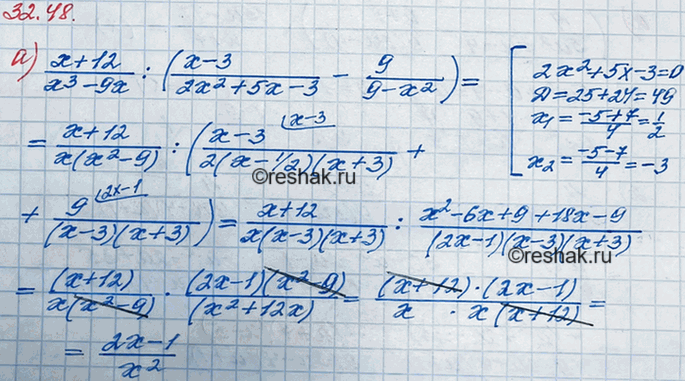 32.48.
а) (x+12)/(x³-9x) : ((x-3)/(2x²+5x-3) - 9/(9-x²)) =
[ 2x²+5x-3=0
D=25+24=49
x₁=(-5+7)/4=1/2
x₂=(-5-7)/4=-3
= (x+12)/(x(x²-9)) : ((x-3)^(x-3)/(2(x-1/2)(x+3)) +
©reshak.ru
+ 9^(2x-1)/((x-3)(x+3))) = (x+12)/(x(x-3)(x+3)) : (x²-6x+9+18x-9)/((2x-1)(x-3)(x+3))
= (x+12)/(x(x²-9)) · (2x-1)(x²-9)/(x²+12x) = (x+12)·(2x-1)/(x · x(x+12)) =
©reshak.ru
= (2x-1)/x²